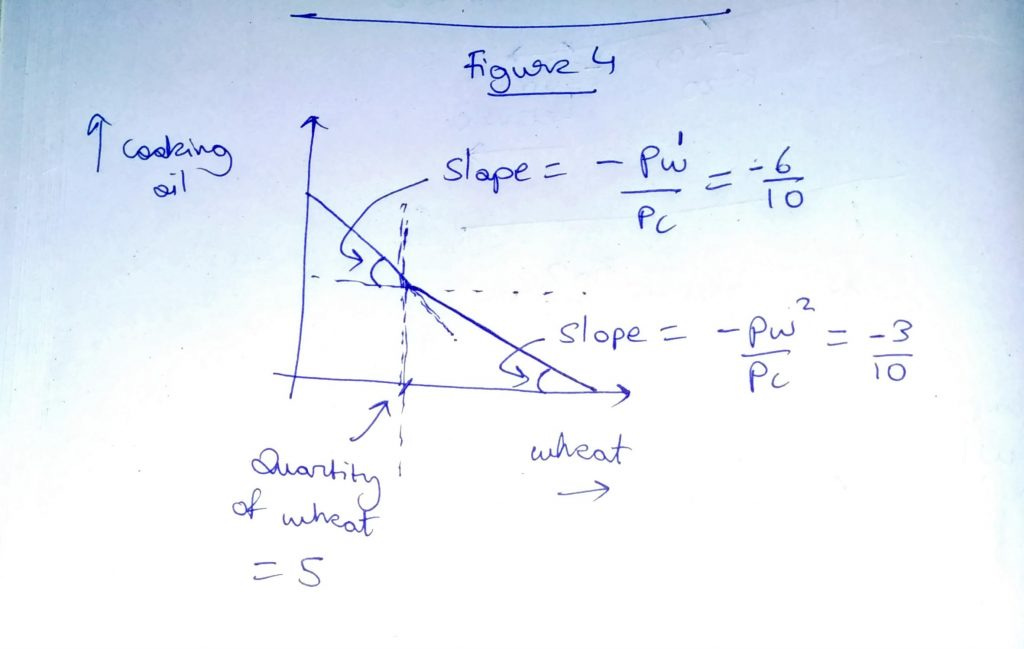 Figure 4
↑ cooking
oil
Slope = - Pw¹ / Pc = -6/10
Slope = - Pw² / Pc = -3/10
wheat
→
Quantity
of wheat
= 5